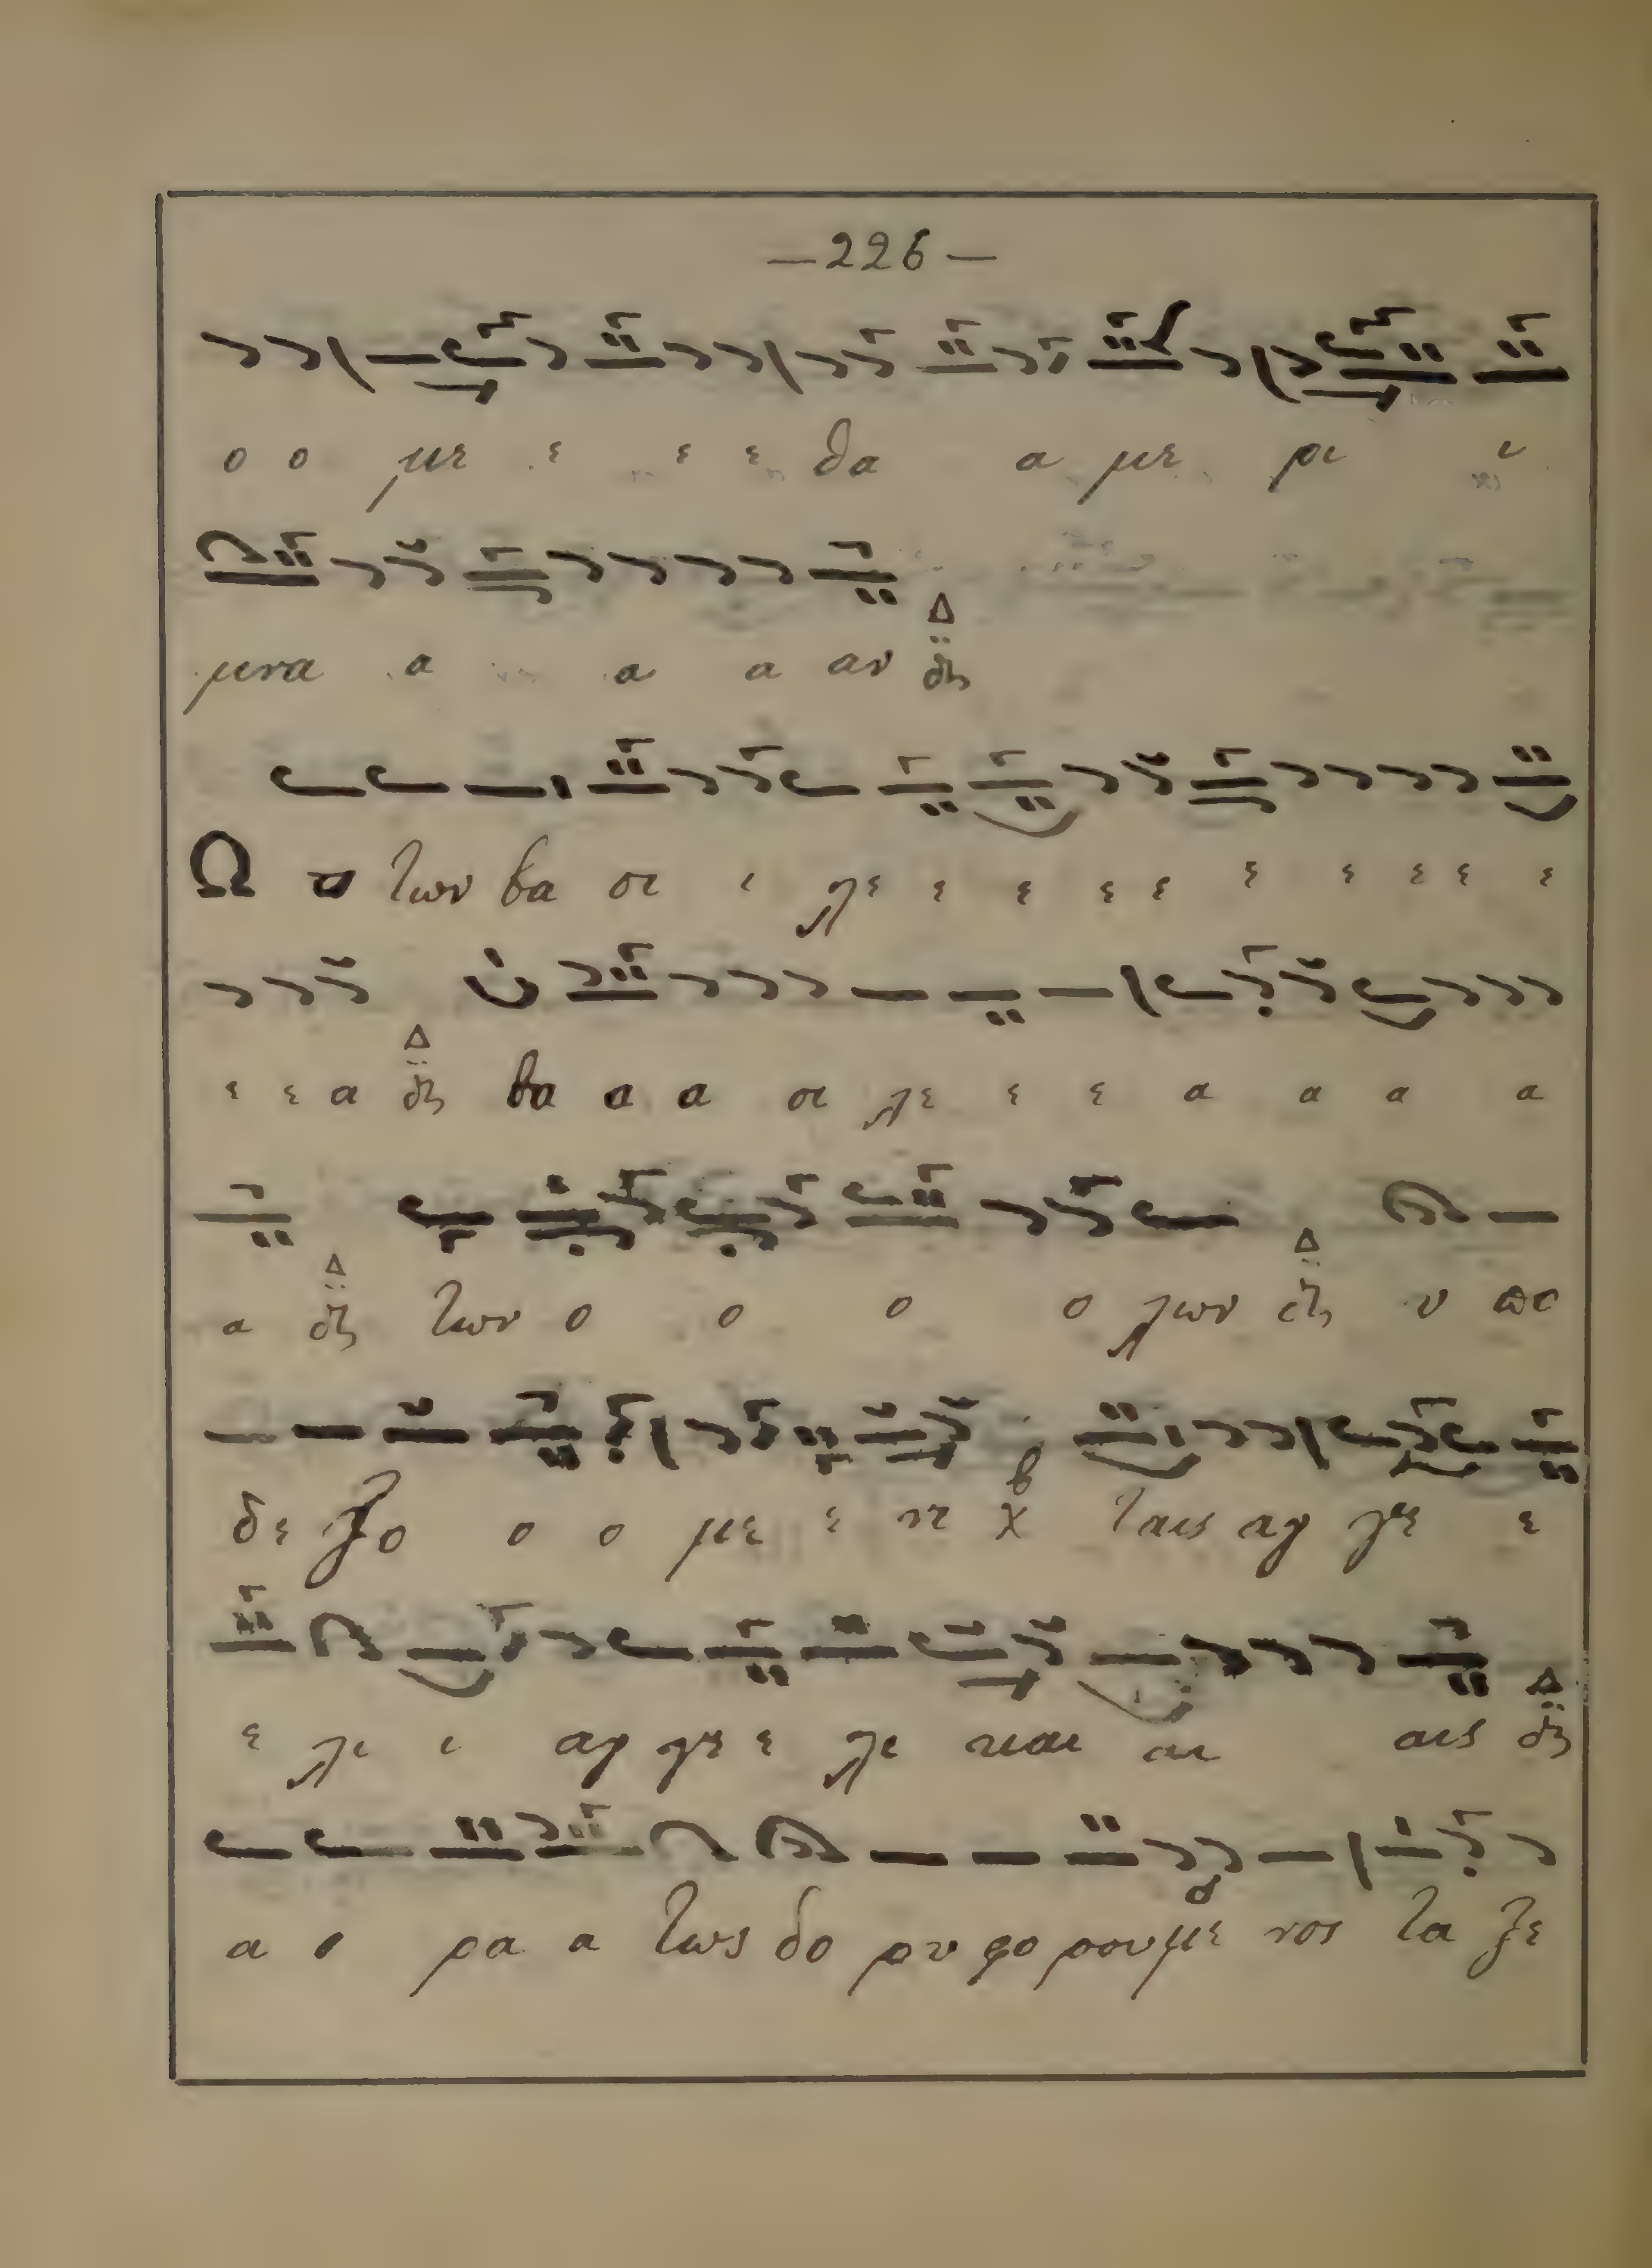 —226—
ο ο με ε ε ε θα α με ρι ι
μνα α α α αν Δ
Ω ω των βα σι ι λε ε ε ε ε ε ε ε ε ε
ε ε α Δ βα α α σι λε ε ε α α α α
α Δ των ο ο ο ο λων Δ υ πο
δε ξο ο ο με ε νοι χ ταις αγ γε ε
ε λι ι αγ γε ε λι και αι αις Δ
α ο ρα α τως δο ρυ φο ρουμε νος τα ξε